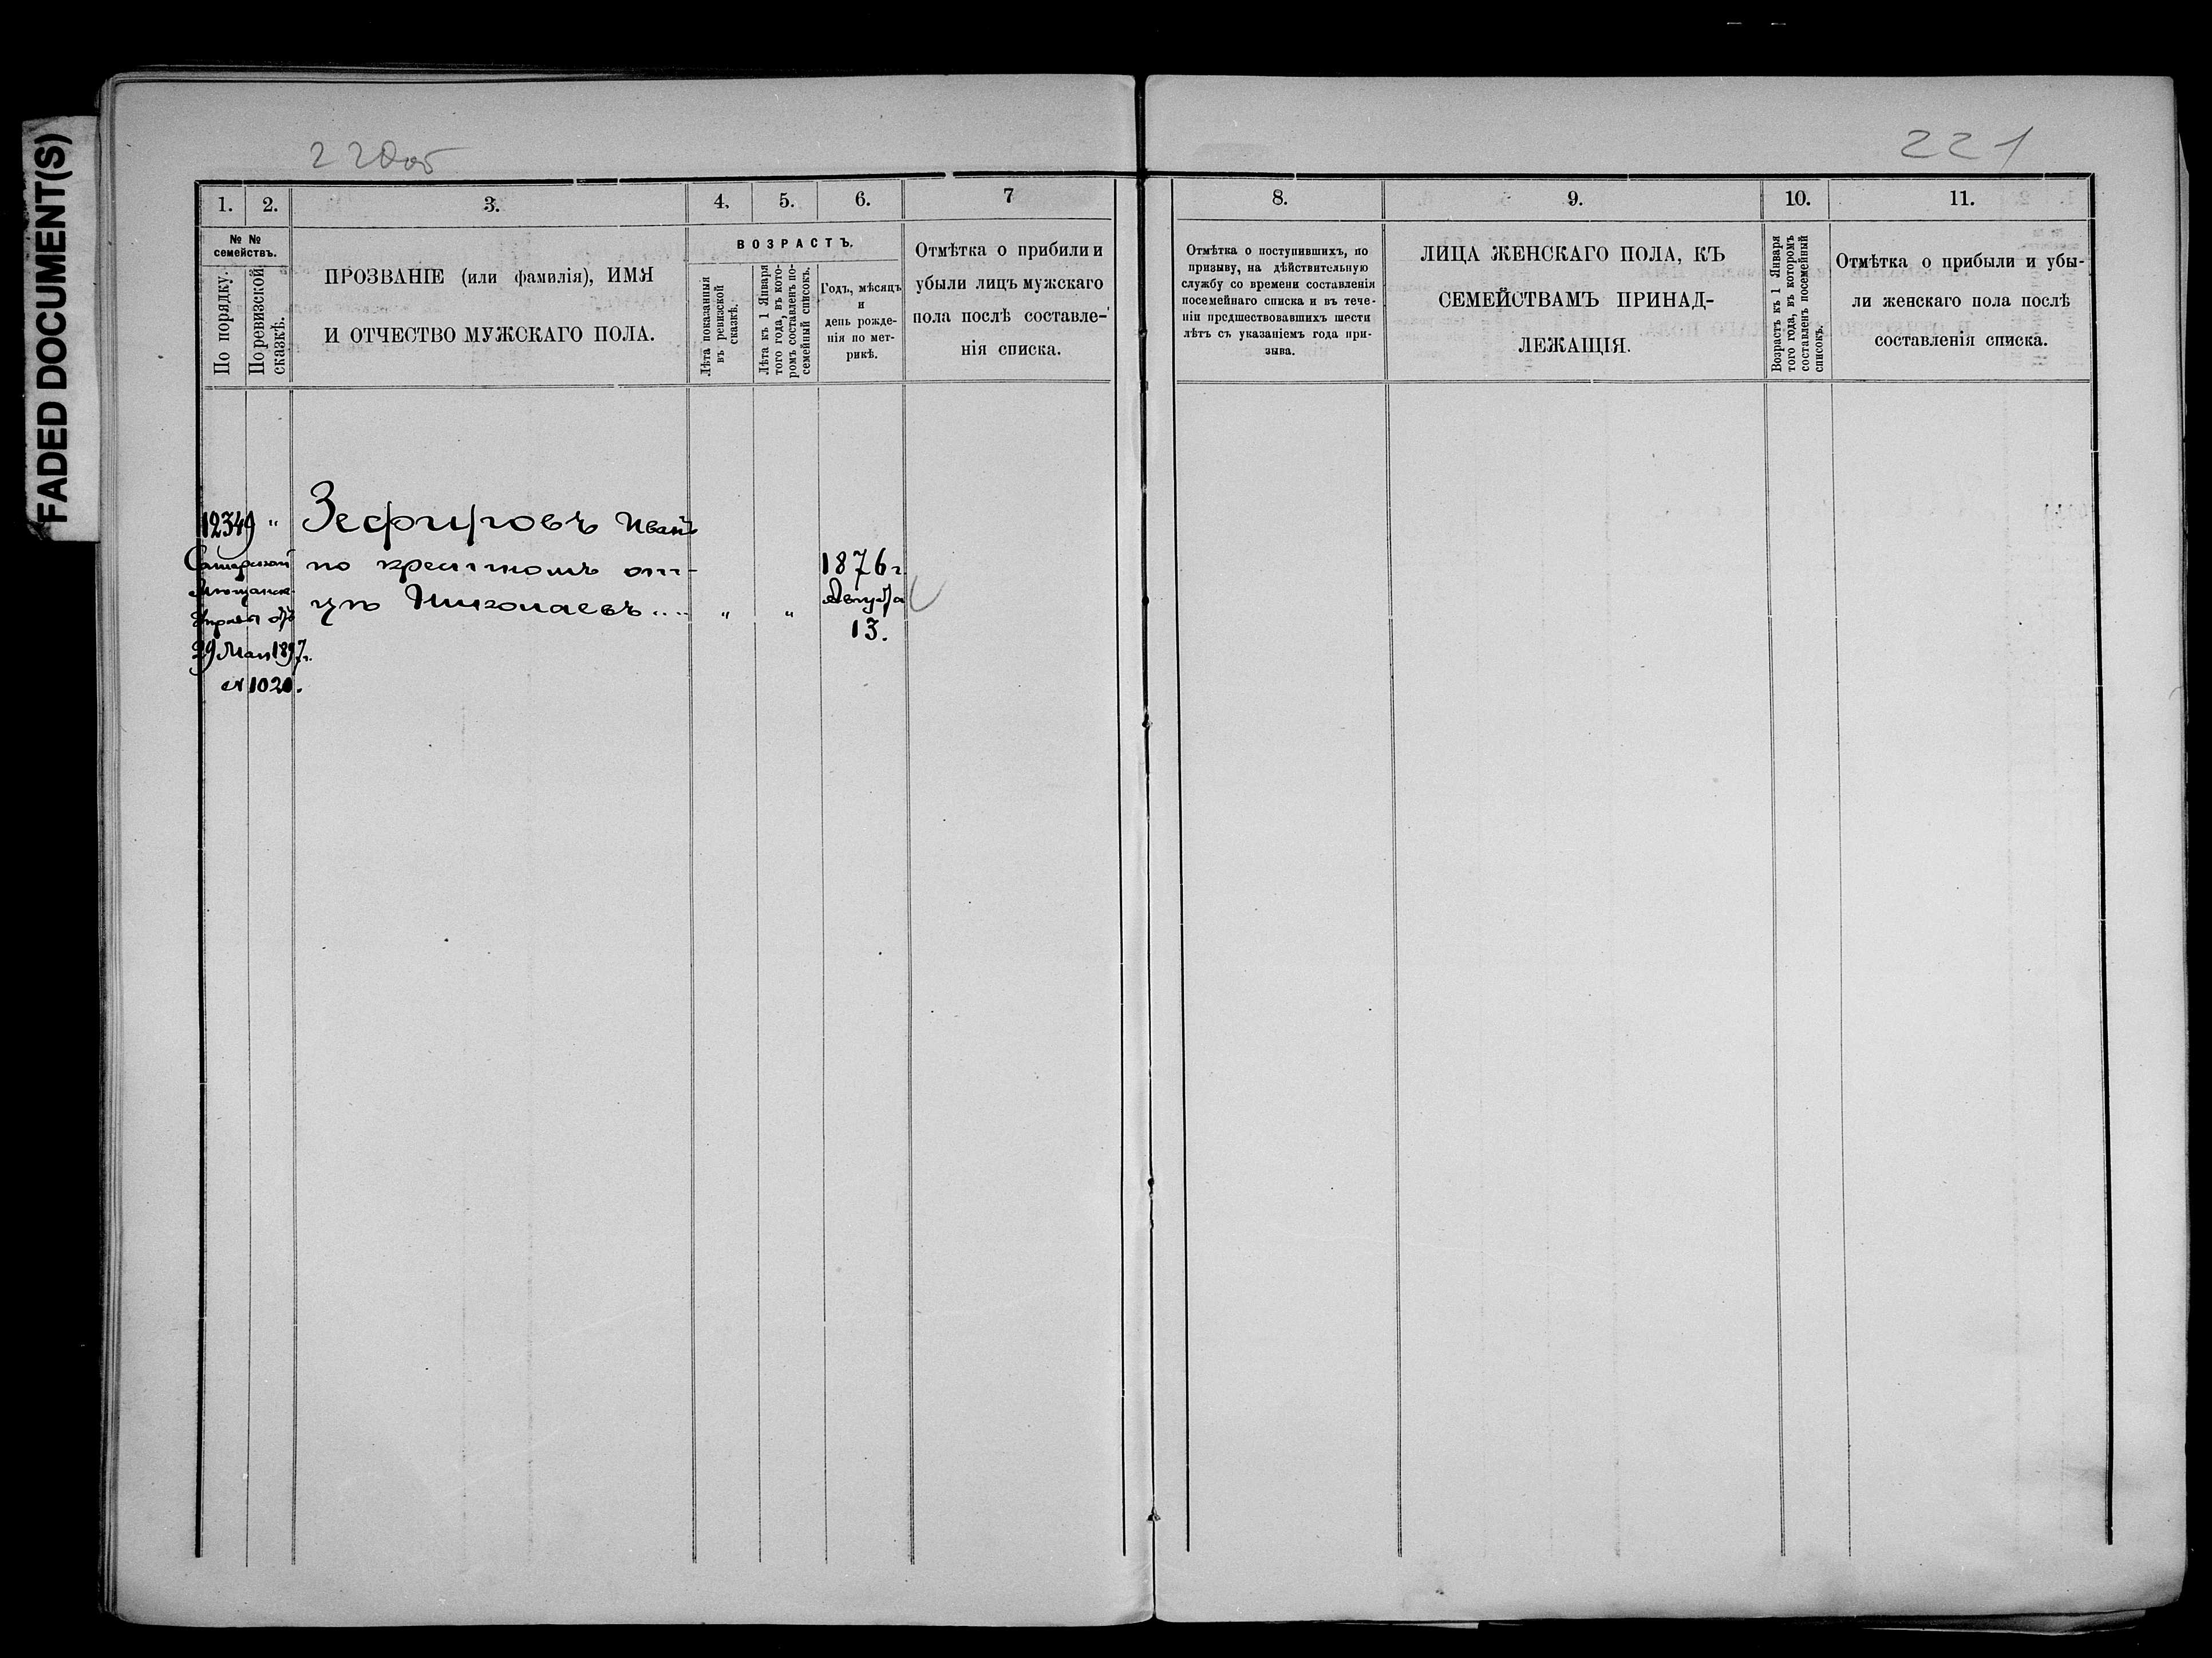 FADED DOCUMENT(S)
220об
221
1.
2.
3.
4.
5.
6.
7
№ №
семействъ.
По порядку.
По ревизской
сказкѣ.
ПРОЗВАНІЕ (или фамилія), ИМЯ
И ОТЧЕСТВО МУЖСКАГО ПОЛА.
ВОЗРАСТЪ.
Лѣта показанныя
въ ревизской
сказкѣ.
Лѣта къ 1 Января
того года, въ кото-
ромъ составленъ по-
семейный списокъ.
Годъ, мѣсяцъ
и
день рожде-
нія по мет-
рикѣ.
Отмѣтка о прибыли и
убыли лицъ мужскаго
пола послѣ составле-
нія списка.
8.
9.
10.
11.
Отмѣтка о поступившихъ, по
призыву, на дѣйствительную
службу со времени составленія
посемейнаго списка и въ тече-
ніи предшествовавшихъ шести
лѣтъ съ указаніемъ года при-
зыва.
ЛИЦА ЖЕНСКАГО ПОЛА, КЪ
СЕМЕЙСТВАМЪ ПРИНАД-
ЛЕЖАЩІЯ.
Возрастъ къ 1 Января
того года, въ которомъ
составленъ посемейный
списокъ.
Отмѣтка о прибыли и убы-
ли женскаго пола послѣ
составленія списка.
12349 "
Самарской
Мѣщанск.
Управы отъ
29 Мая 1897 г.
№ 1020.
Зефировъ Иванъ
по крестномъ от-
цѣ Николаевъ .... " "
1876 г.
Августа
13.